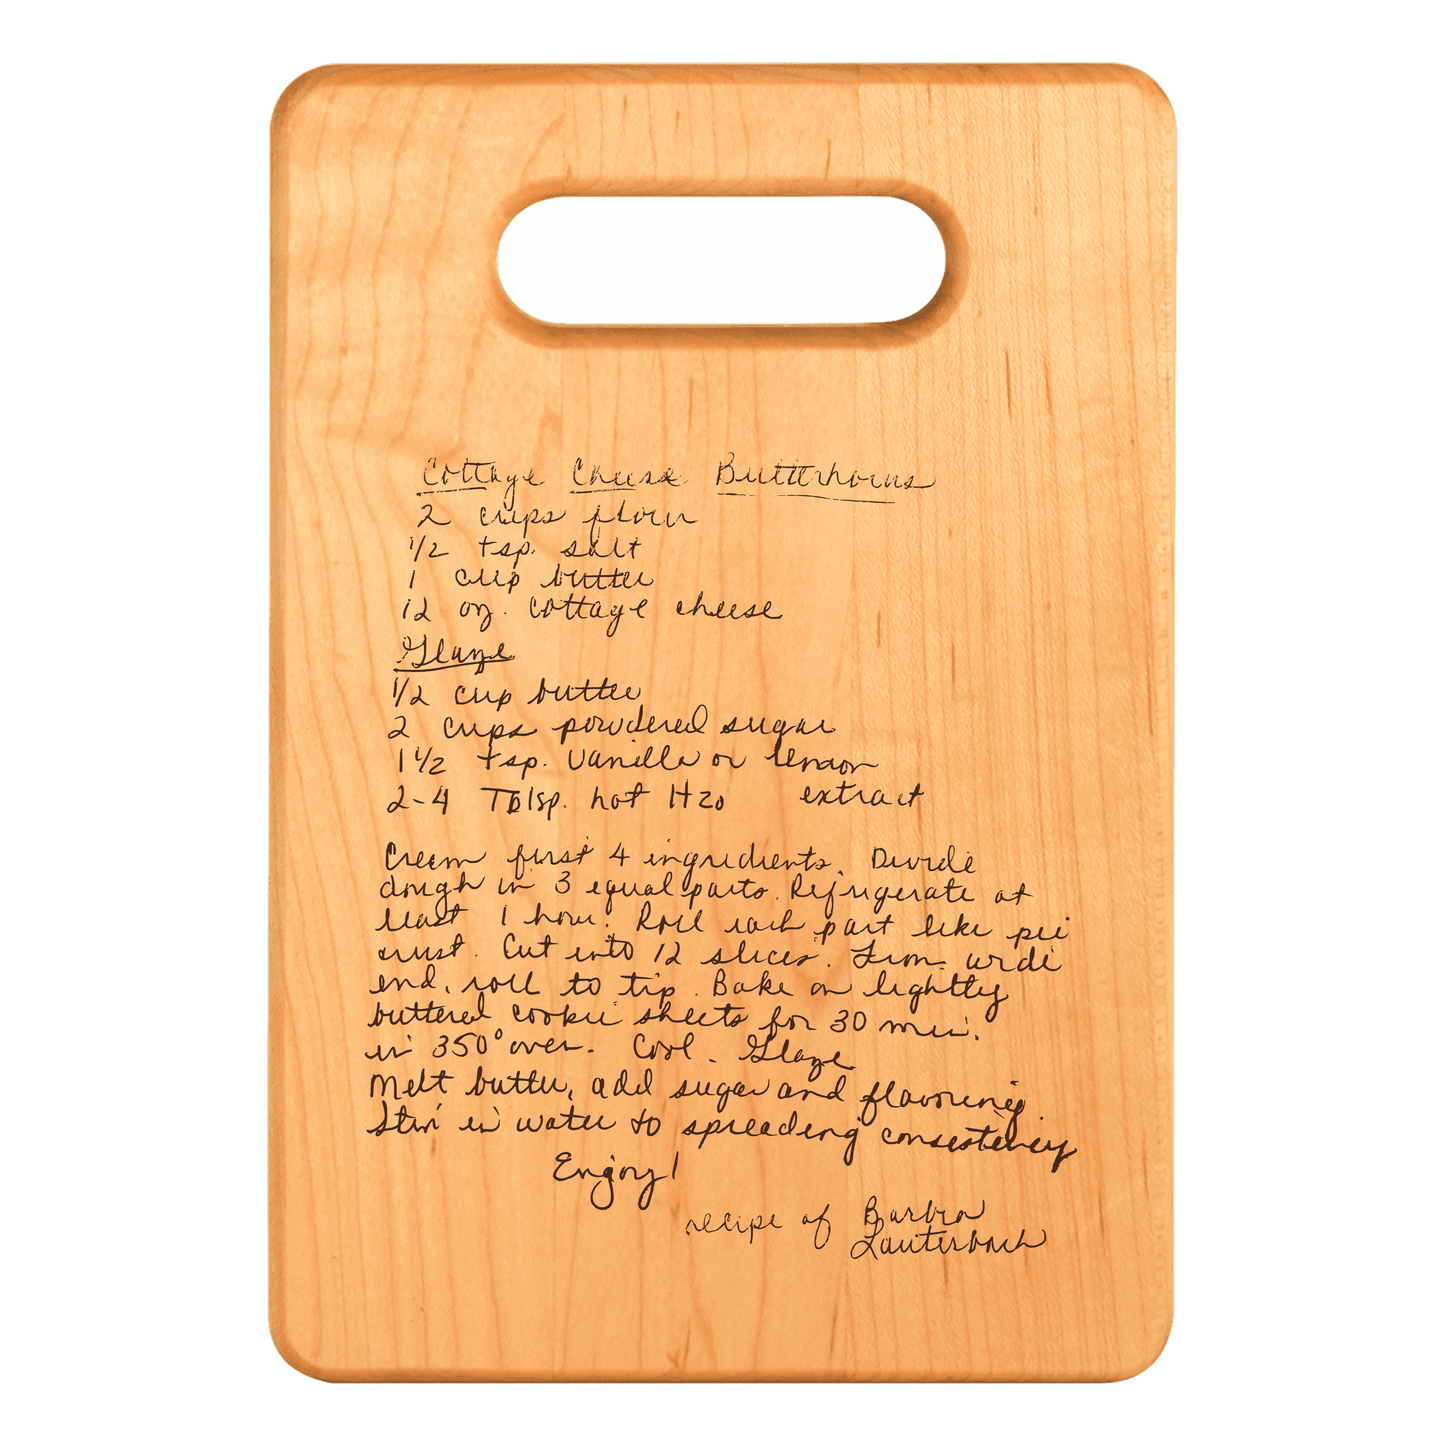 Cottage Cheese Butterhorns
2 cups flour
1/2 tsp. salt
1 cup butter
12 oz. cottage cheese
Glaze
1/2 cup butter
2 cups powdered sugar
1 1/2 tsp. vanilla or lemon
2-4 Tblsp. hot H2O extract
Cream first 4 ingredients. Divide
dough in 3 equal parts. Refrigerate at
least 1 hour. Roll each part like pie
crust. Cut into 12 slices. From wide
end, roll to tip. Bake on lightly
buttered cookie sheets for 30 min.
in 350° oven. Cool. Glaze
Melt butter, add sugar and flavouring.
Stir in water to spreading consistency
Enjoy!
recipe of Barbra
Lauterbach